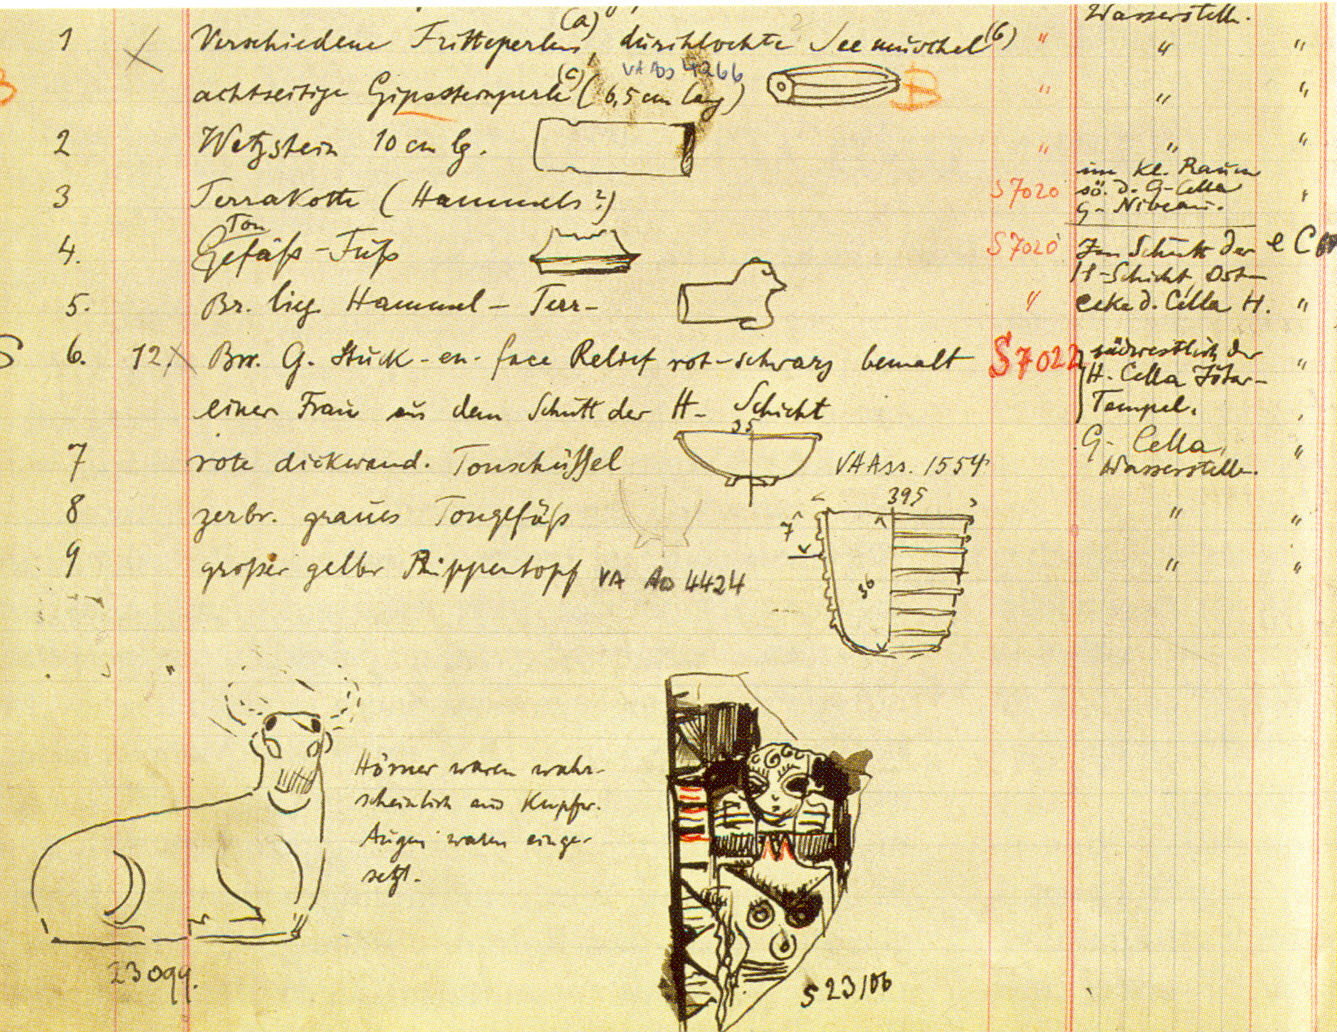 Wasserstelle.
1 Verschiedene Fritteperlen (a), durchlochte Seemuschel (b) " " "
VA Ass 4266
achtseitige Gipssteinperle (c) (6,5 cm lang) B " " "
2 Wetzstein 10 cm lg. " " "
3 Terrakotte (Hammels?) S 7020 im Kl. Raum
sö. d. G-Cella "
G-Niveau.
Ton
4. Gefäß-Fuß S 7020 Im Schutt der e C
H-Schicht Ost-
5. Br. lieg. Hammel-Terr- " ecke d. Cella H. "
6. 12 Brr. G. Stuck-en-face Relief rot-schwarz bemalt S 7022 südwestlich der "
H. Cella Ištar-
einer Frau aus dem Schutt der H-Schicht Tempel.
35
7 rote dickwand. Tonschüssel VA Ass. 1554 G-Cella, "
Wasserstelle.
395
8 zerbr. graues Tongefäß 7 " "
9 großer gelber Rippentopf VA Ass 4424 36 " "
Hörner waren wahr-
scheinlich aus Kupfer.
Augen waren einge-
setzt.
23099.
S 23106